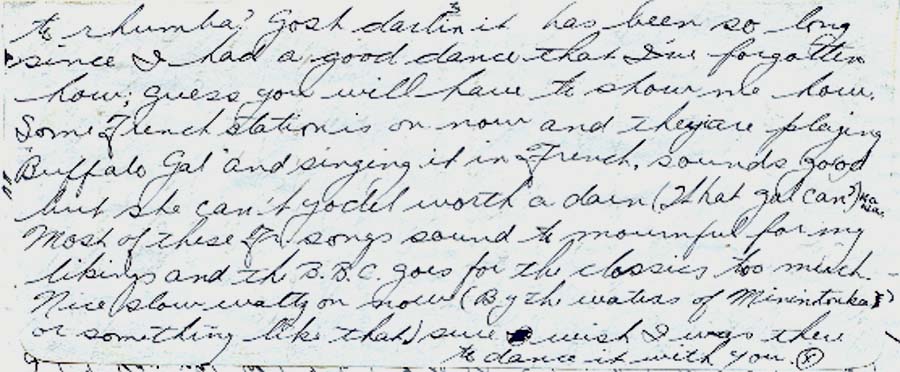 to rhumba? Gosh darlin it has been so long
since I had a good dance that I've forgotten
how; guess you will have to show me how.
Some French station is on now and they are playing
"Buffalo Gal" and singing it in French, sounds good
but she can't yodel worth a darn (That gal can?) Ha Ha.
Most of these Fr songs sound to mournful for my
likings and the B.B.C. goes for the classics too much.
Nice slow waltz on now (By the waters of Minintonka?
or something like that) sure wish I was there
to dance it with you. (X)